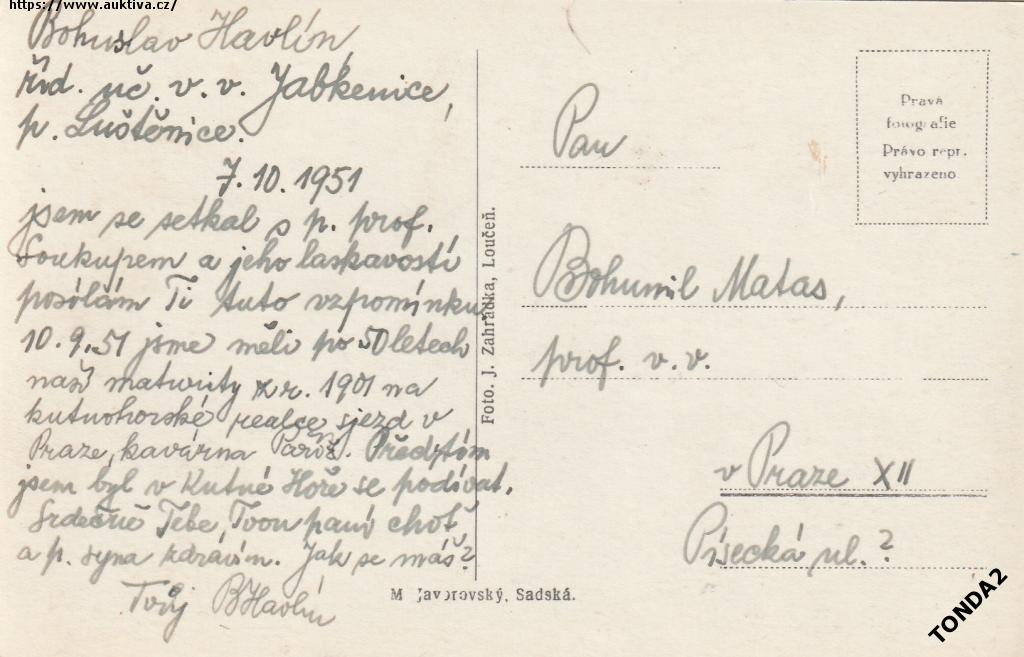 https://www.auktiva.cz/
Bohuslav Havlín,
říd. uč. v. v. Jabkenice,
p. Luštěnice.
7.10.1951
jsem se setkal s p. prof.
Soukupem a jeho laskavostí
posílám Ti tuto vzpomínku.
10.9.51 jsme měli po 50 letech
naší maturity z r. 1901 na
kutnohorské realce sjezd v
Praze, kavárna Paříž. Předtím
jsem byl v Kutné Hoře se podívat.
Srdečně Tebe, Tvou paní choť
a p. syna zdravím. Jak se máš?
Tvůj BHavlín
Foto. J. Zahrádka, Loučeň.
M. Javorovský, Sadská.
Pravá
fotografie
Právo repr.
vyhrazeno
Pan
Bohumil Matas,
prof. v. v.
v Praze XII
Písecká ul.?
TONDA2